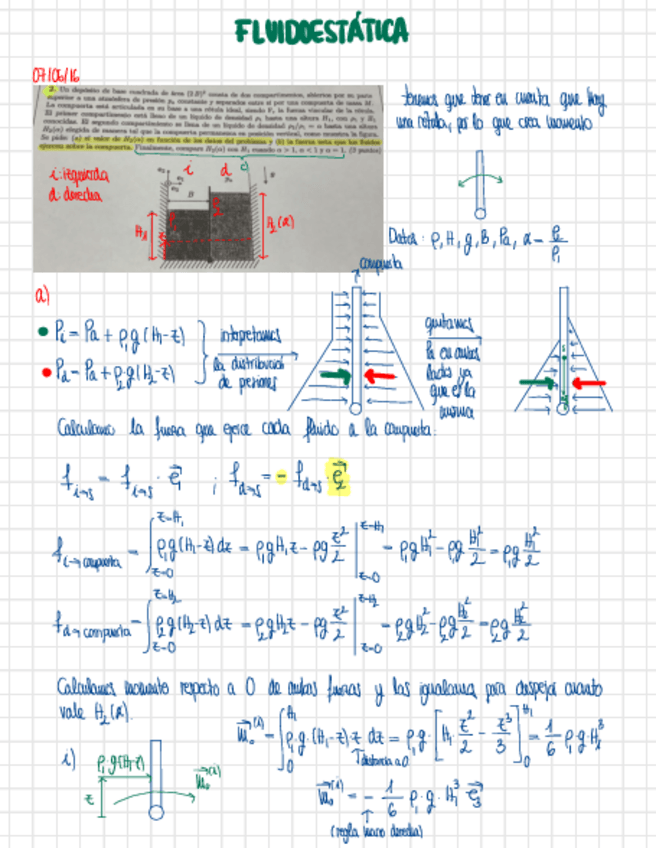 FLUIDOESTÁTICA
07/06/16
2. Un depósito de base cuadrada de área (2B)² consta de dos compartimentos, abiertos por su parte
superior a una atmósfera de presión pₐ constante y separados entre sí por una compuerta de masa M.
La compuerta está articulada en su base a una rótula ideal, siendo Fᵥ la fuerza vincular de la rótula.
El primer compartimento está lleno de un líquido de densidad ρ₁ hasta una altura H₁, con ρ₁ y H₁
conocidas. El segundo compartimento se llena de un líquido de densidad ρ₂/ρ₁ = α hasta una altura
H₂(α) elegida de manera tal que la compuerta permanezca en posición vertical, como muestra la figura.
Se pide: (a) el valor de H₂(α) en función de los datos del problema y (b) la fuerza neta que los fluidos
ejercen sobre la compuerta. Finalmente, compare H₂(α) con H₁ cuando α > 1, α < 1 y α = 1.
tenemos que tener en cuenta que hay
una rótula, por lo que crea momento
i: izquierda
d: derecha
i d
B
H₁
H₂(α)
Datos: ρ, H, g, B, Pa, α = ρ₂/ρ₁
compuerta
a)
Pi = Pa + ρ₁g(H₁-z)
Pd = Pa + ρ₂g(H₂-z)
interpretamos
la distribución
de presiones
quitamos
Pa en ambos
lados ya
que es la
misma
Calculamos la fuerza que ejerce cada fluido a la compuerta:
f i→s = f i→s · e⃗₁ ; f d→s = - f d→s · e⃗₂
f i→compuerta = ∫ z=0 z=H₁ ρ₁g(H₁-z) dz = ρ₁gH₁z - ρ₁g z²/2 | z=0 z=H₁ = ρ₁gH₁² - ρ₁g H₁²/2 = ρ₁g H₁²/2
f d→compuerta = ∫ z=0 z=H₂ ρ₂g(H₂-z) dz = ρ₂gH₂z - ρ₂g z²/2 | z=0 z=H₂ = ρ₂gH₂² - ρ₂g H₂²/2 = ρ₂g H₂²/2
Calculamos momento respecto a O de ambas fuerzas y las igualamos para despejar cuanto
vale H₂(α).
m₀⁽ⁱ⁾ = ∫ 0 H₁ ρ₁·g·(H₁-z)·z dz = ρ₁g·[H₁ z²/2 - z³/3] 0 H₁ = 1/6 ρ₁·g·H₁³
distancia a O
i)
ρ₁·g(H₁-z)
z
m₀⁽ⁱ⁾
m₀⁽ⁱ⁾ = - 1/6 ρ₁·g·H₁³ e⃗₃
(regla mano derecha)